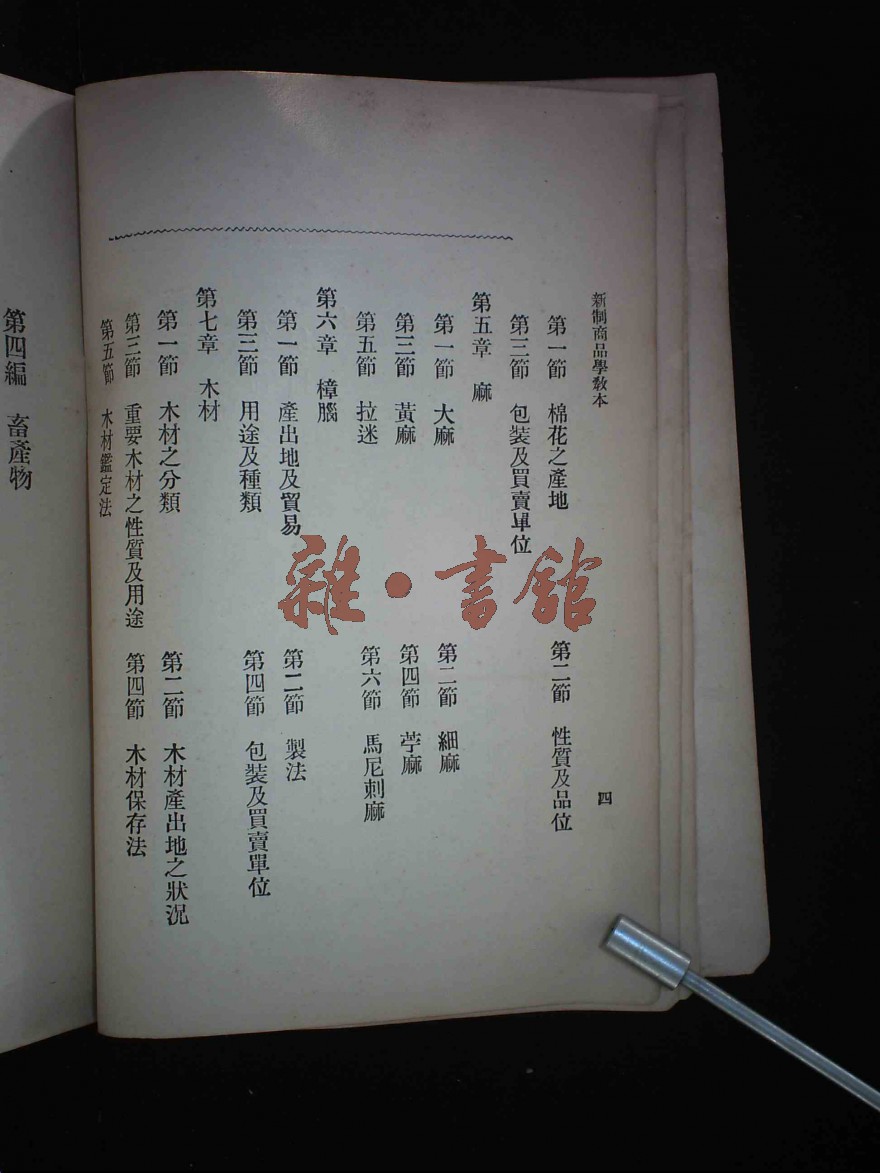 新制商品學教本
四
第一節 棉花之產地 第二節 性質及品位
第三節 包裝及買賣單位
第五章 麻
第一節 大麻 第二節 細麻
第三節 黃麻 第四節 苧麻
第五節 拉迷 第六節 馬尼剌麻
第六章 樟腦
第一節 產出地及貿易 第二節 製法
第三節 用途及種類 第四節 包裝及買賣單位
第七章 木材
第一節 木材之分類 第二節 木材產出地之狀況
第三節 重要木材之性質及用途 第四節 木材保存法
第五節 木材鑑定法
第四編 畜產物
雜·書館